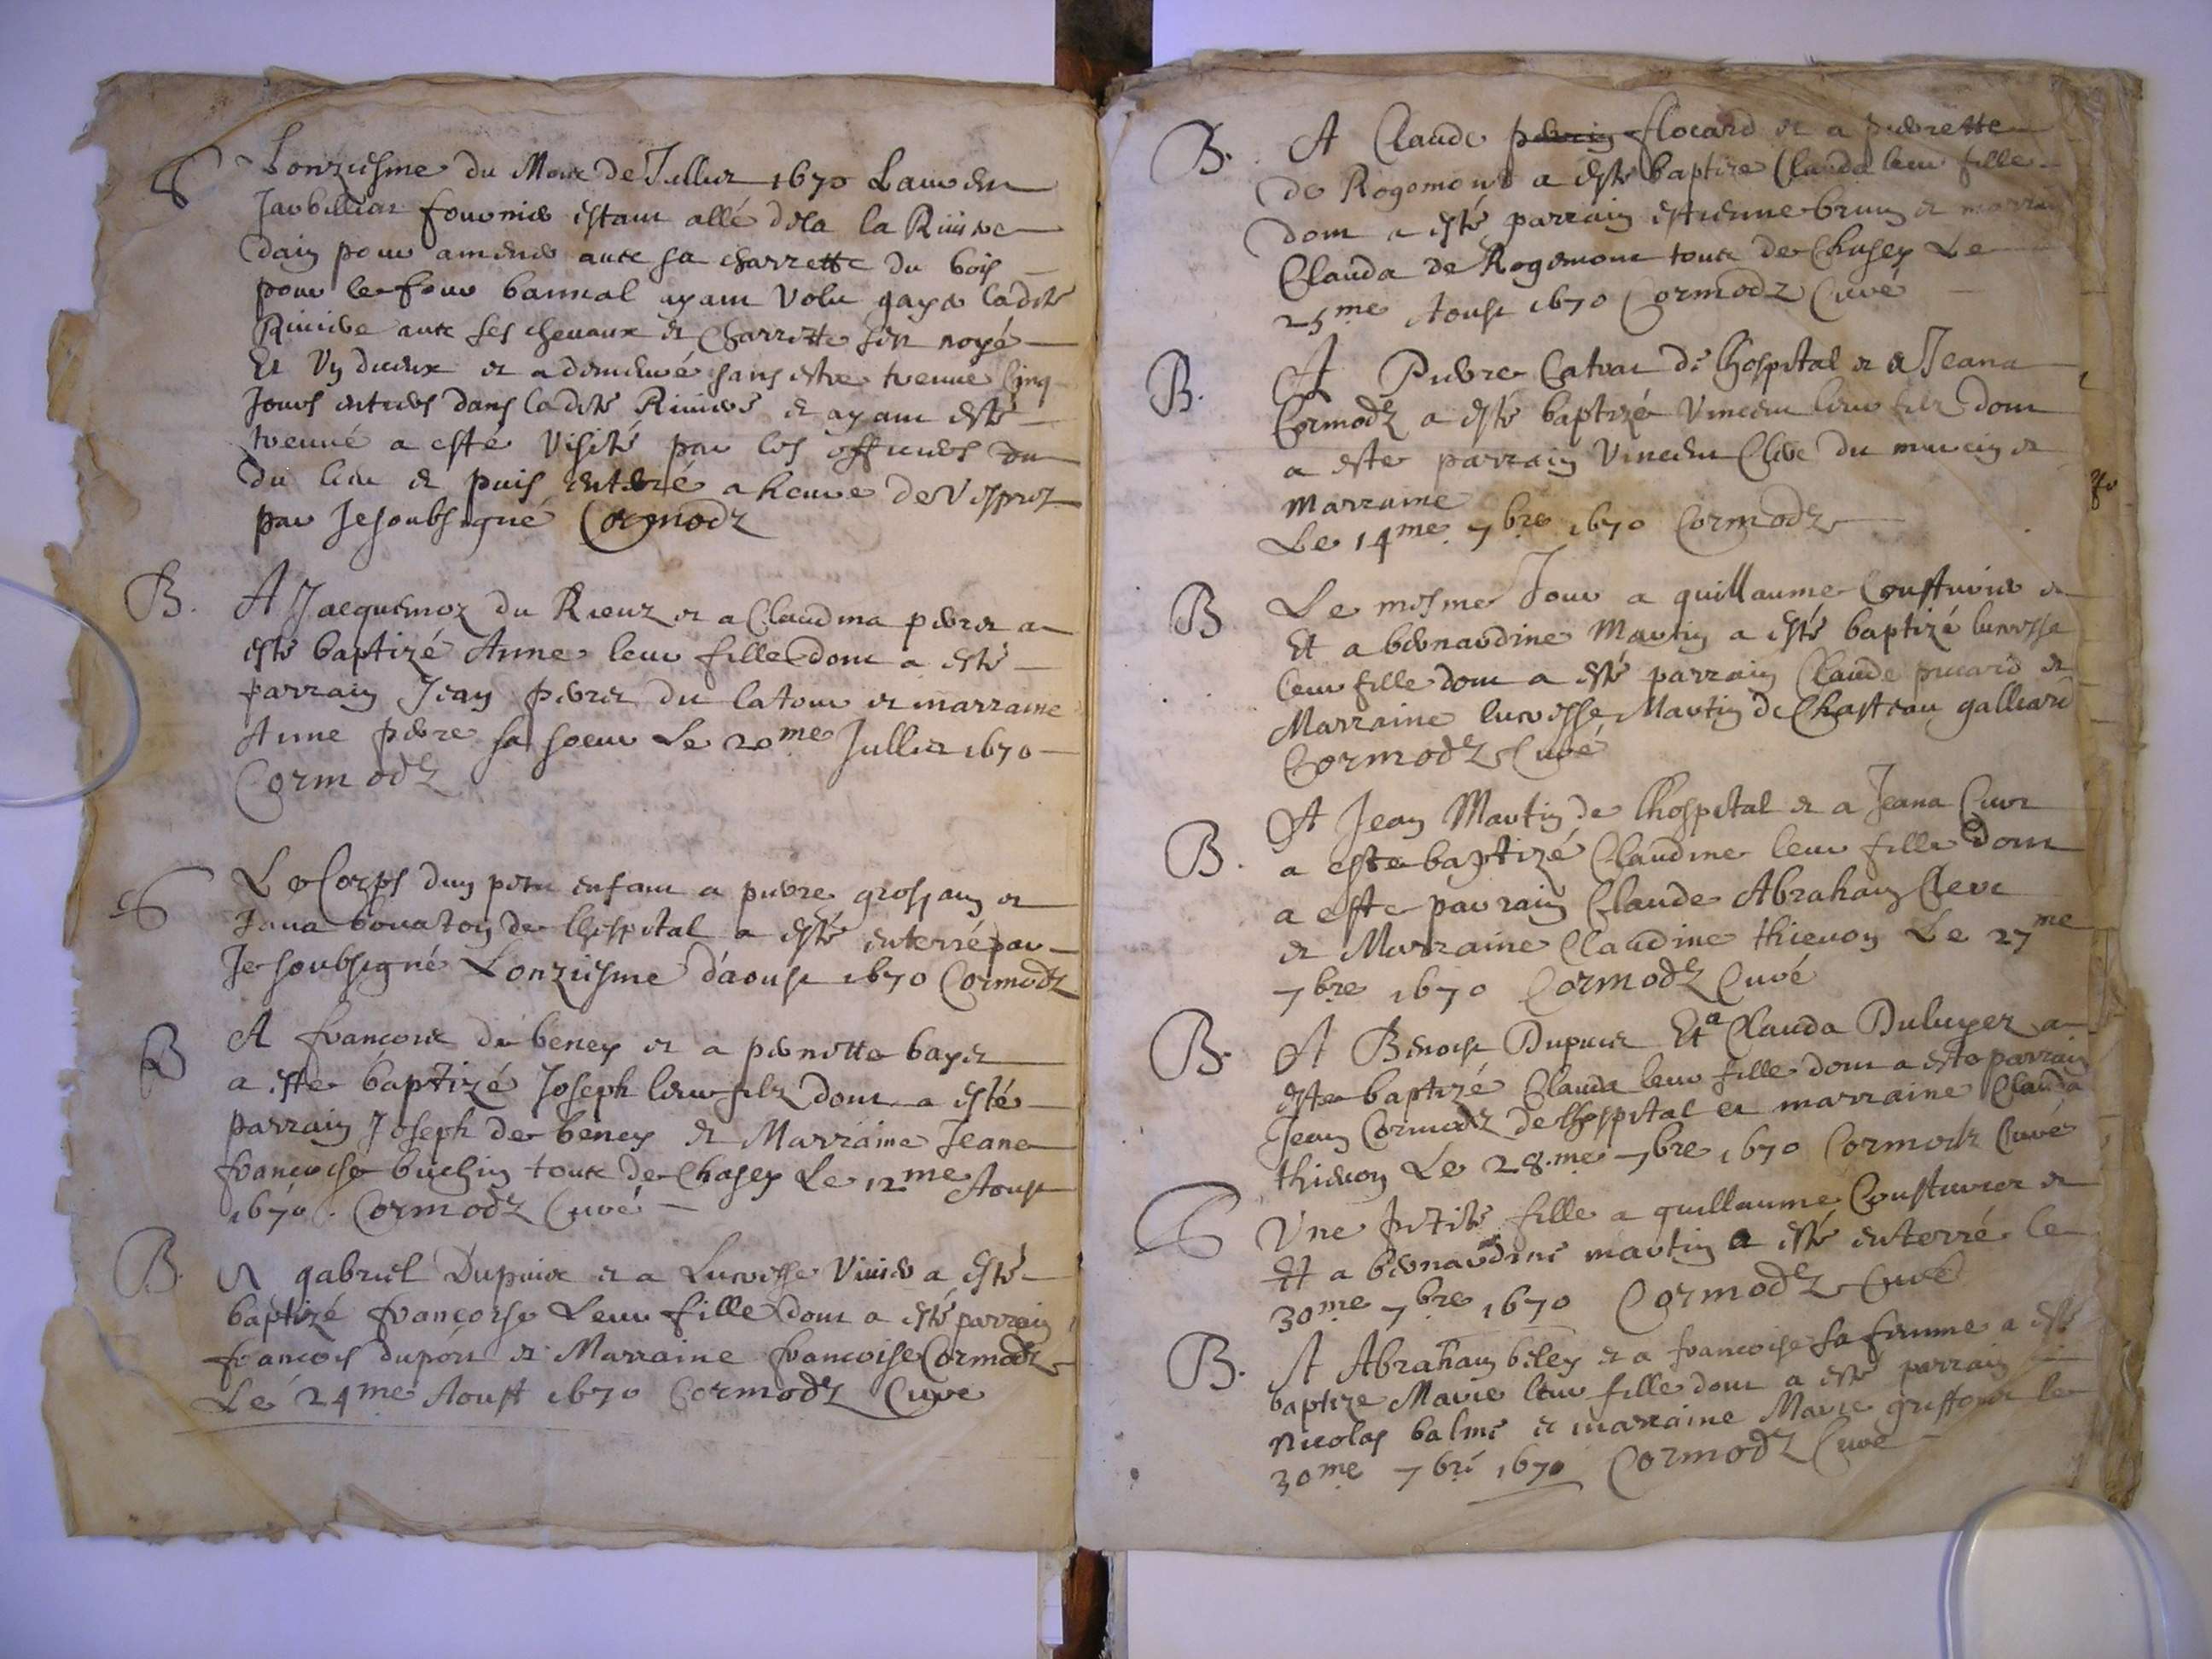 S Lonziesme du Mois de Jullier 1670 Laurens
fournier estant allé dela la Riviere
dain pour amener avec sa charrette du bois
pour le four bannal ayant volu gayer ladite
Riviere avec ses chevaux et charrette sest noyé
Et a demeuré sans estre treuvé Cinq
Jours entiers dans ladite Riviere et ayant esté
treuvé a esté visité par les officiers du
du lieu et puis enterré a heure de vespres
par Je soubsigné Cormodz
B. A Jacquemoz du Rieuz et a Claudina perret a
esté baptizé Anne leur fille dont a esté
parrain Jean perret du latour et marraine
Anne perre sa soeur Le 20me Jullier 1670
Cormodz
S Le Corps dun petit enfant a pierre grosjean et
Jana bouaton de lhospital a esté enterré par
Je soubsigné Lonziesme d'aoust 1670 Cormodz
B A francois de beney et a pernette bayet
a esté baptizé Joseph leur filz dont a esté
parrain Joseph de beney et Marraine Jeane
francoise buchin touts de Chasey Le 12me Aoust
1670. Cormodz Curé
B. A gabriel Dupuis et a Lucresse Vivier a esté
baptizé francoise Leur fille dont a esté parrain
francois dupont et Marraine francoise Cormodz
Le 24me Aoust 1670 Cormodz Curé
B. A Claude perrin flocard et a pierrette
de Rogemont a esté baptize Clauda leur fille
dont a esté parrain estienne brun et marraine
Clauda de Rogemont touts de Chasey Le
25me Aoust 1670 Cormodz Curé
B. A Pierre Catrat de lhospital et a Jeana
Cormodz a esté baptizé Vincent leur filz dont
a esté parrain Vincent Clerc du mucin et
Marraine
Le 14me 7bre 1670 Cormodz
B Le mesme Jour a guillaume Cousturier et
Et a bernardine Martin a esté baptizé lucresse
leur fille dont a esté parrain Claude picard et
Marraine lucresse Martin de Chasteau galliard
Cormodz Curé
B. A Jean Martin de lhospital et a Jeana
a esté baptizé Claudine leur fille dont
a esté parrain Claude Abraham Clerc
et Marraine Claudine thievon Le 27me
7bre 1670 Cormodz Curé
B. A Benoist Dupuis Et a Clauda Duluyez a
esté baptizé Clauda leur fille dont a esté parrain
Jean Cormodz de lhospital et marraine Clauda
thievon Le 28.me 7bre 1670 Cormodz Curé
S Une petite fille a guillaume Cousturier et
Et a bernardine martin a esté enterré le
30me 7bre 1670 Cormodz Curé
B. A Abraham biley et a francoise sa femme a esté
baptize Marie leur fille dont a esté parrain
nicolas balme et marraine Marie le
30me 7bre 1670 Cormodz Curé